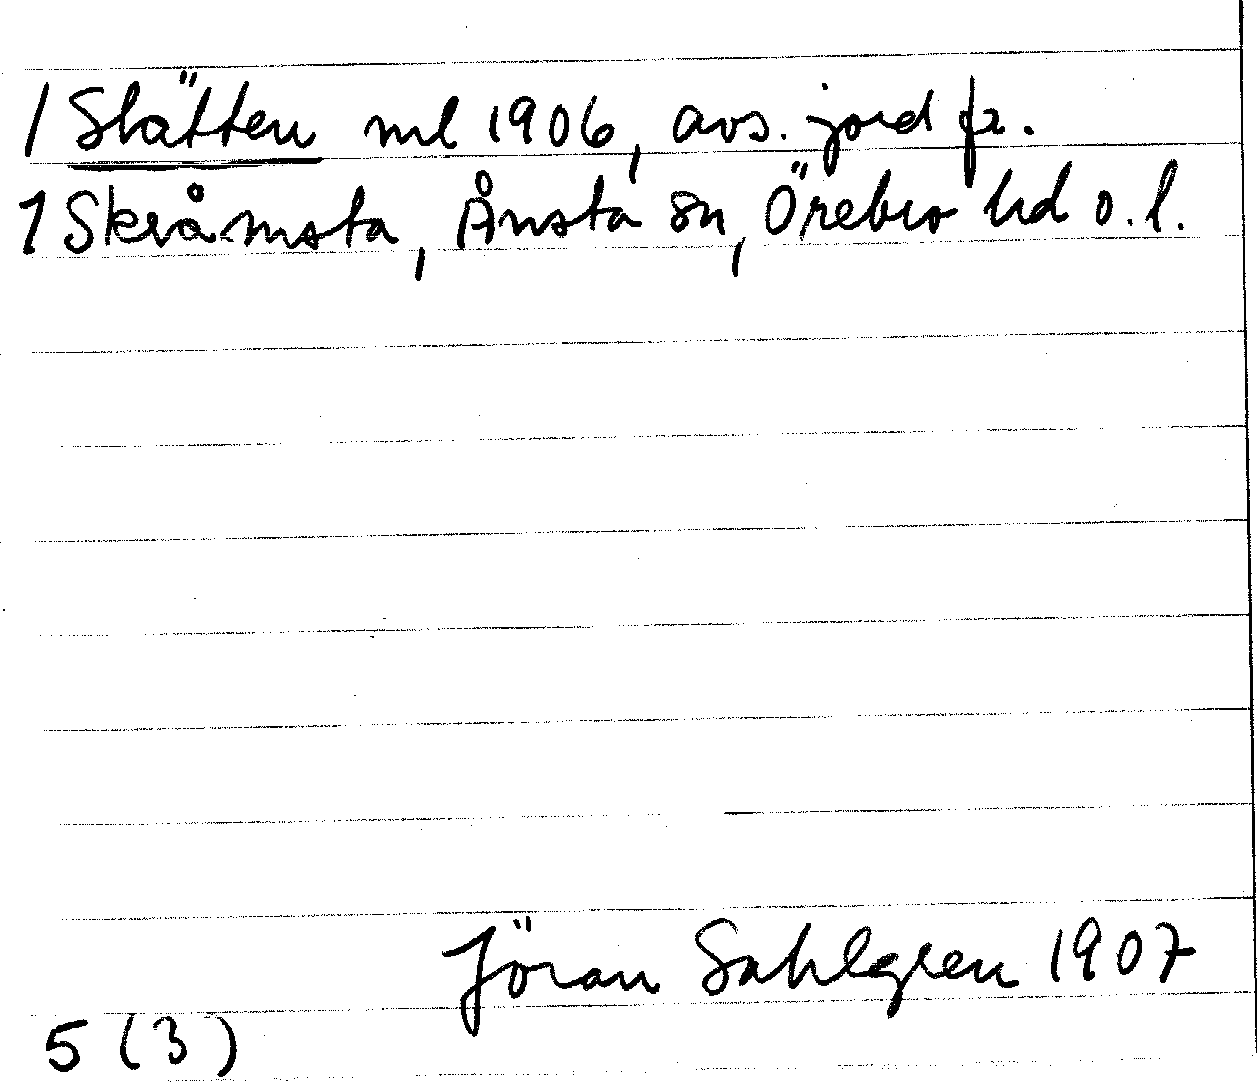 1 Slätten ml 1906, avs. jord fr.
1 Skråmsta, Ånsta sn, Örebro hd o. l.
Jöran Sahlgren 1907
5 (3)